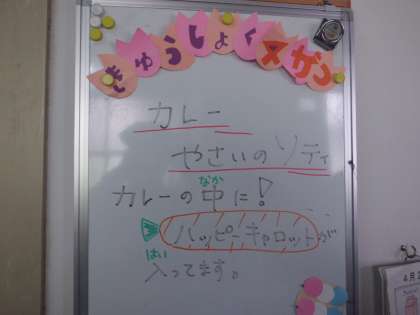 きゅうしょくメかっ
カレー
やさいのソティ
カレーの中に!
なか
ハッピーキャロットが
はい
入ってます。
4月